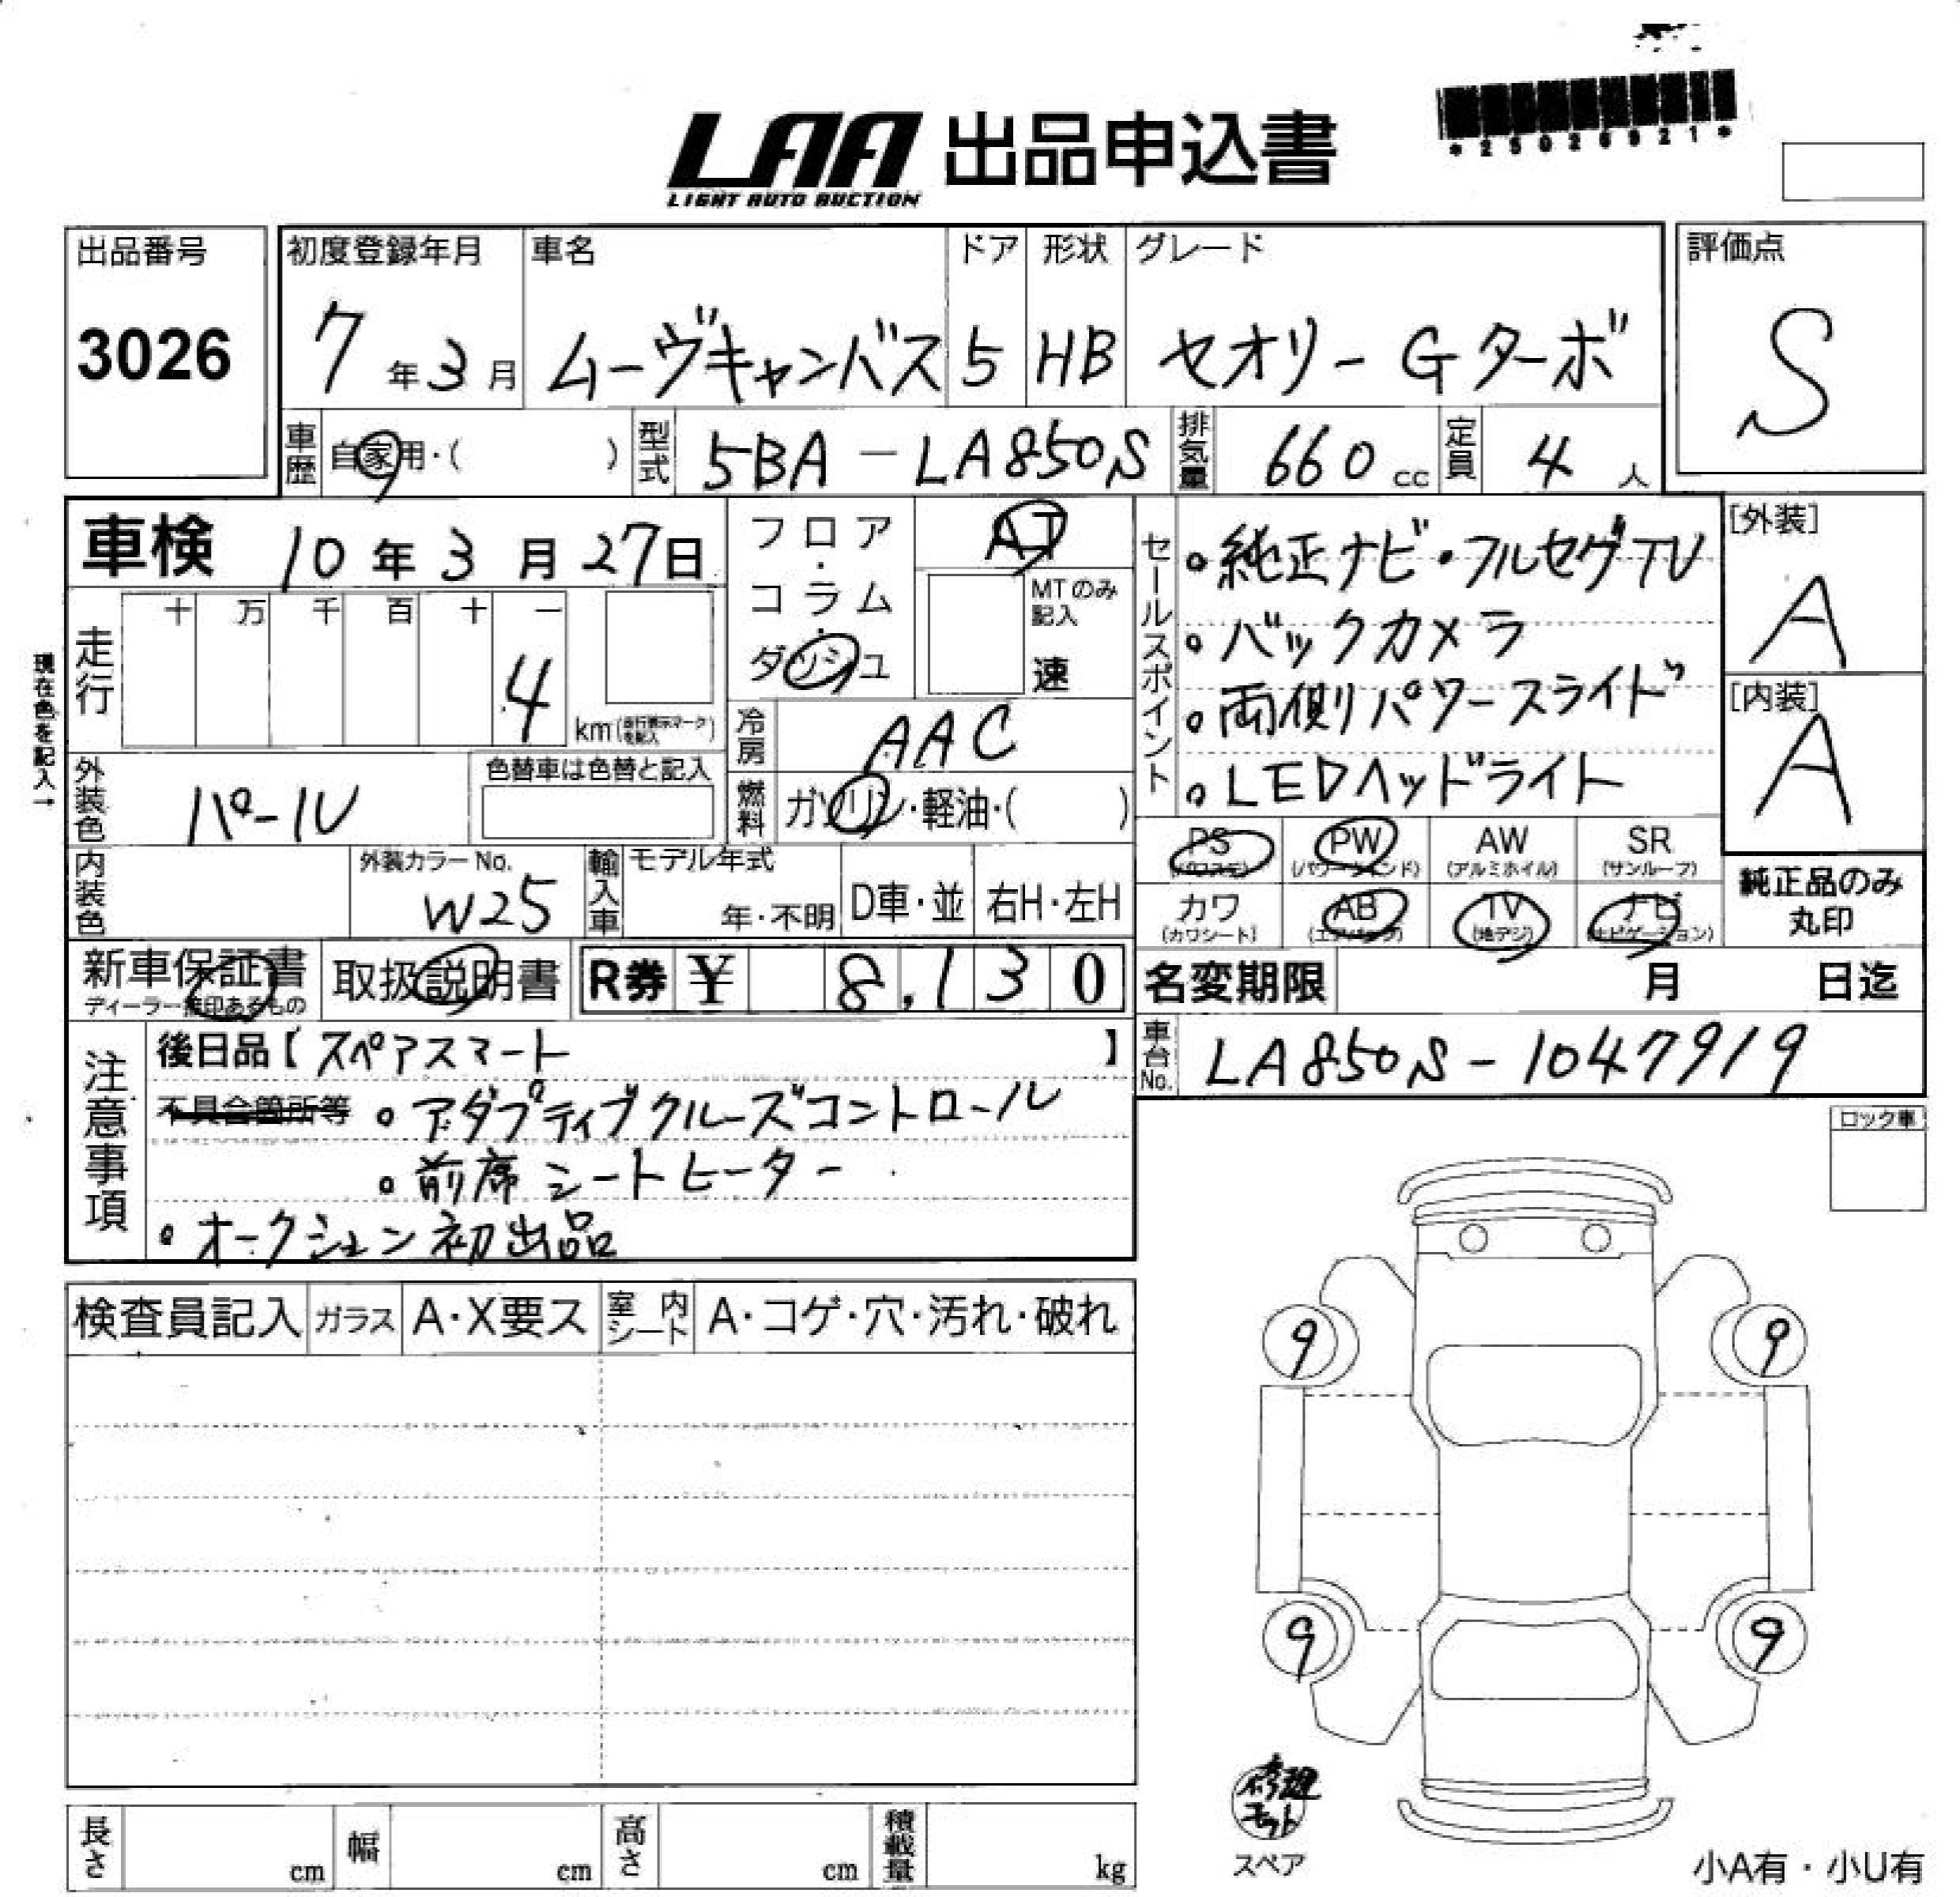 *25026921*
LAA 出品申込書
LIGHT AUTO AUCTION
出品番号 初度登録年月 車名 ドア 形状 グレード 評価点
3026 7年3月 ムーヴキャンバス 5 HB セオリーGターボ S
車歴 自家用・( ) 型式 5BA-LA850S 排気量 660cc 定員 4人
車検 10年3月27日
フロア・コラム・ダッシュ
AT
MTのみ記入
速
セールスポイント
。純正ナビ・フルセグTV
。バックカメラ
。両側パワースライド
。LEDヘッドライト
[外装]
A
[内装]
A
現在色を記入→
走行 十 万 千 百 十 一
4 km(走行表示マークを記入)
冷房 AAC
外装色 パール 色替車は色替と記入
燃料 ガソリン・軽油・( )
内装色 外装カラーNo. W25
輸入車 モデル年式 年・不明 D車・並 右H・左H
PS PW AW SR
(パワステ) (パワーウインド) (アルミホイル) (サンルーフ)
カワ AB TV ナビ
(カワシート) (エアバッグ) (地デジ) (ナビゲーション)
純正品のみ
丸印
新車保証書 取扱説明書 R券 ¥ 8,130 名変期限 月 日迄
ディーラー無印あるもの
車台No. LA850S-1047919
注意事項
後日品【スペアスマート】
不具合箇所等 。アダプティブクルーズコントロール
。前席シートヒーター
。オークション初出品
ロック車
検査員記入 ガラス A・X要ス 室内シート A・コゲ・穴・汚れ・破れ
9 9
9 9
修理キット
スペア
長さ cm 幅 cm 高さ cm 積載量 kg
小A有・小U有